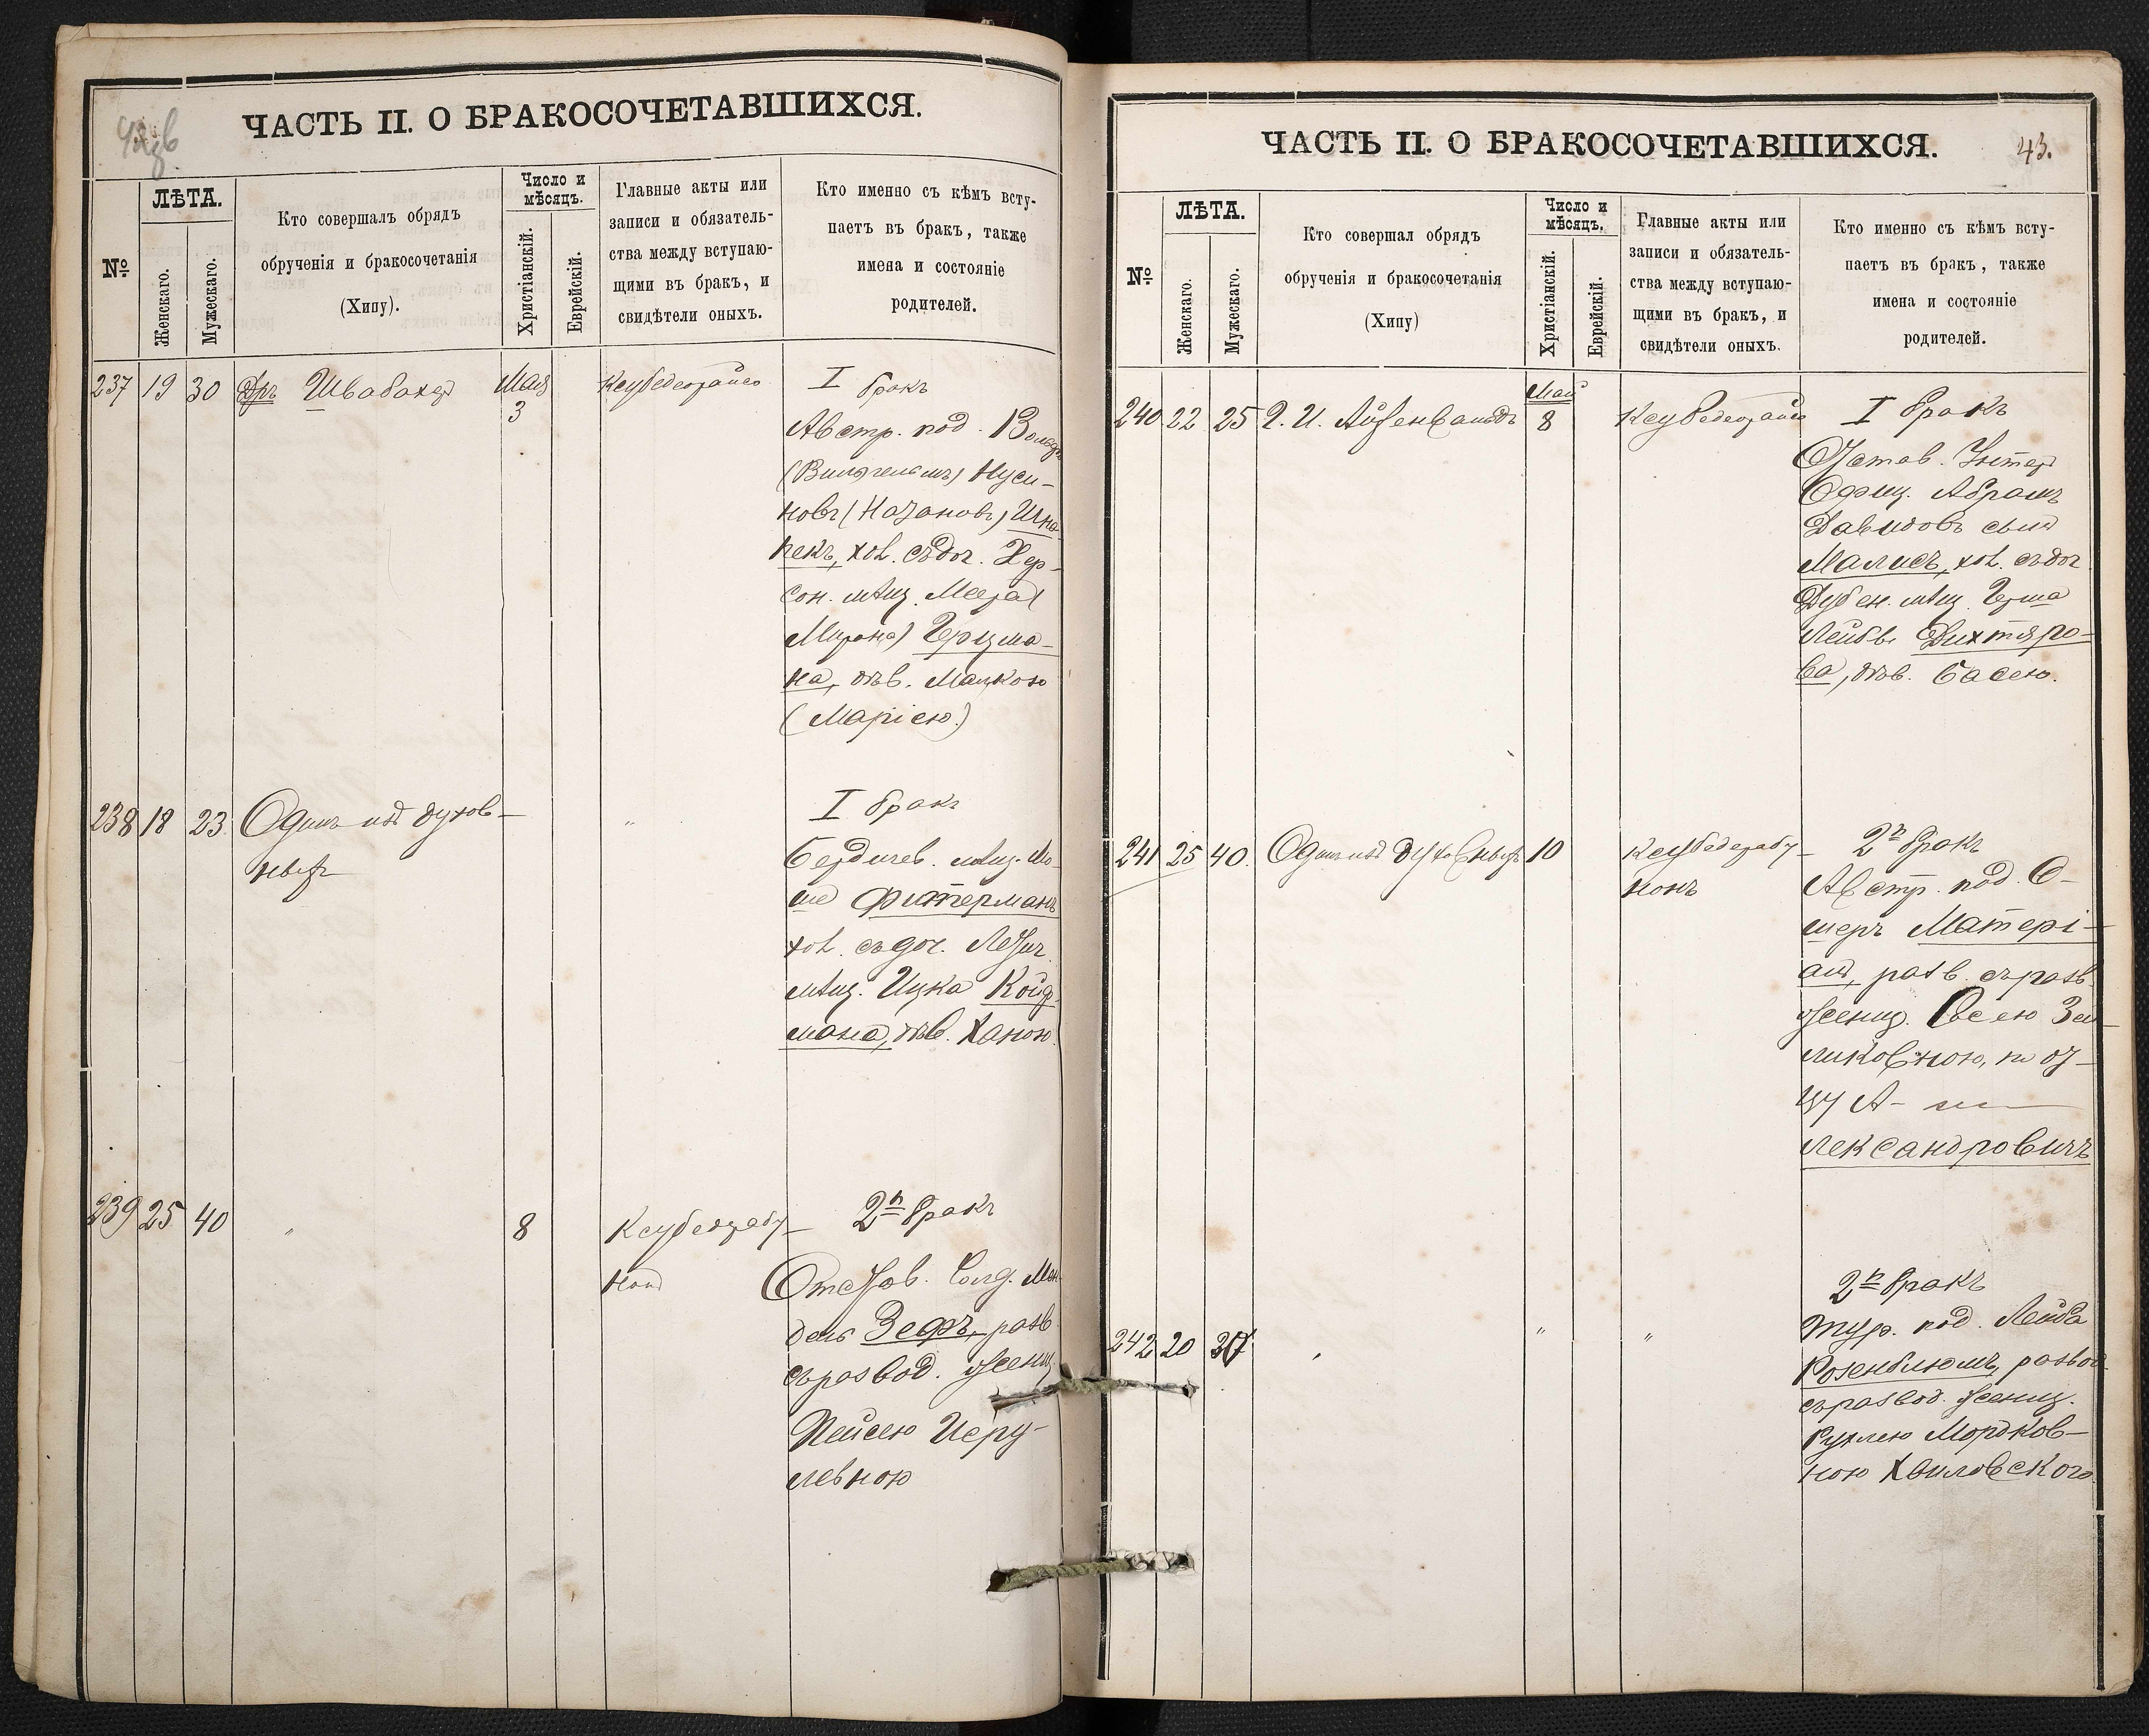 ЧАСТЬ II. О БРАКОСОЧЕТАВШИХСЯ.
№
ЛѢТА.
Женскаго.
Мужескаго.
Кто совершалъ обрядъ
обрученія и бракосочетанія
(Хипу).
Число и
мѣсяцъ.
Христіанскій.
Еврейскій.
Главные акты или
записи и обязатель-
ства между вступаю-
щими въ бракъ, и
свидѣтели оныхъ.
Кто именно съ кѣмъ всту-
паетъ въ бракъ, также
имена и состояніе
родителей.
237 19 30 Дръ Швабахер Мая
3
I бракъ
Австр. под.
(Вильгельмъ) Нуси-
новъ (Натановъ)
пекъ, хол. съ доч. Хер-
сон. мѣщ. Меера (
Мирона) Герцма-
на, дѣв. Манкою
(Маріею)
238 18 23 Одинъ изъ духов-
ныхъ
"
I бракъ
Бердичев. мѣщ. Мо-
ше Фитерманъ
хол. съ доч.
мѣщ. Ицка Койф-
мана, дѣв. Ханою.
239 25 40 " 8 Ксубедерабу-
нонъ
2й бракъ
Отстав. Солд. Мен-
дель Зефъ, разв.
съ развод. женщ.
Пейсею Иеру-
левною
ЧАСТЬ II. О БРАКОСОЧЕТАВШИХСЯ.
43.
№
ЛѢТА.
Женскаго.
Мужескаго.
Кто совершал обрядъ
обрученія и бракосочетанія
(Хипу)
Число и
мѣсяцъ.
Христіанскій.
Еврейскій.
Главные акты или
записи и обязатель-
ства между вступаю-
щими въ бракъ, и
свидѣтели оныхъ.
Кто именно съ кѣмъ всту-
паетъ въ бракъ, также
имена и состояніе
родителей.
Май
240 22 25 Г. И. Айзенвальдъ 8
I бракъ
Отстав. Унтер
Офиц. Абрамъ
Давидовъ сын
Малисъ, хол. съ доч.
Дубен. мѣщ. Герша
Лейбы Дихтяро-
ва, дѣв. Басею.
241 25 40. Одинъ изъ духовныхъ 10 Ксубедерабу-
нонъ
2й бракъ
Австр. под. О-
шеръ Матері-
ал, разв. съ разв.
женщ. Осею Зей-
ликовною, по от-
цу А-
лександровичъ
242 20 " "
2й бракъ
Тур. под. Лейба
Розенблюмъ, развод.
съ развод. женщ.
Рухлею Мордков-
ною Хвиловского